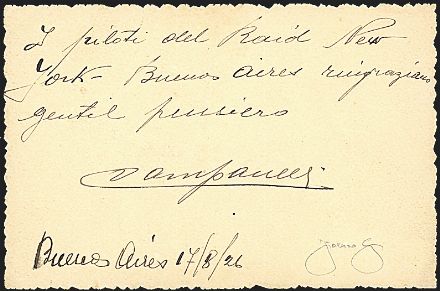 I piloti del Raid New
York - Buenos Aires ringraziano
gentil pensiero
Buenos Aires 17/8/26